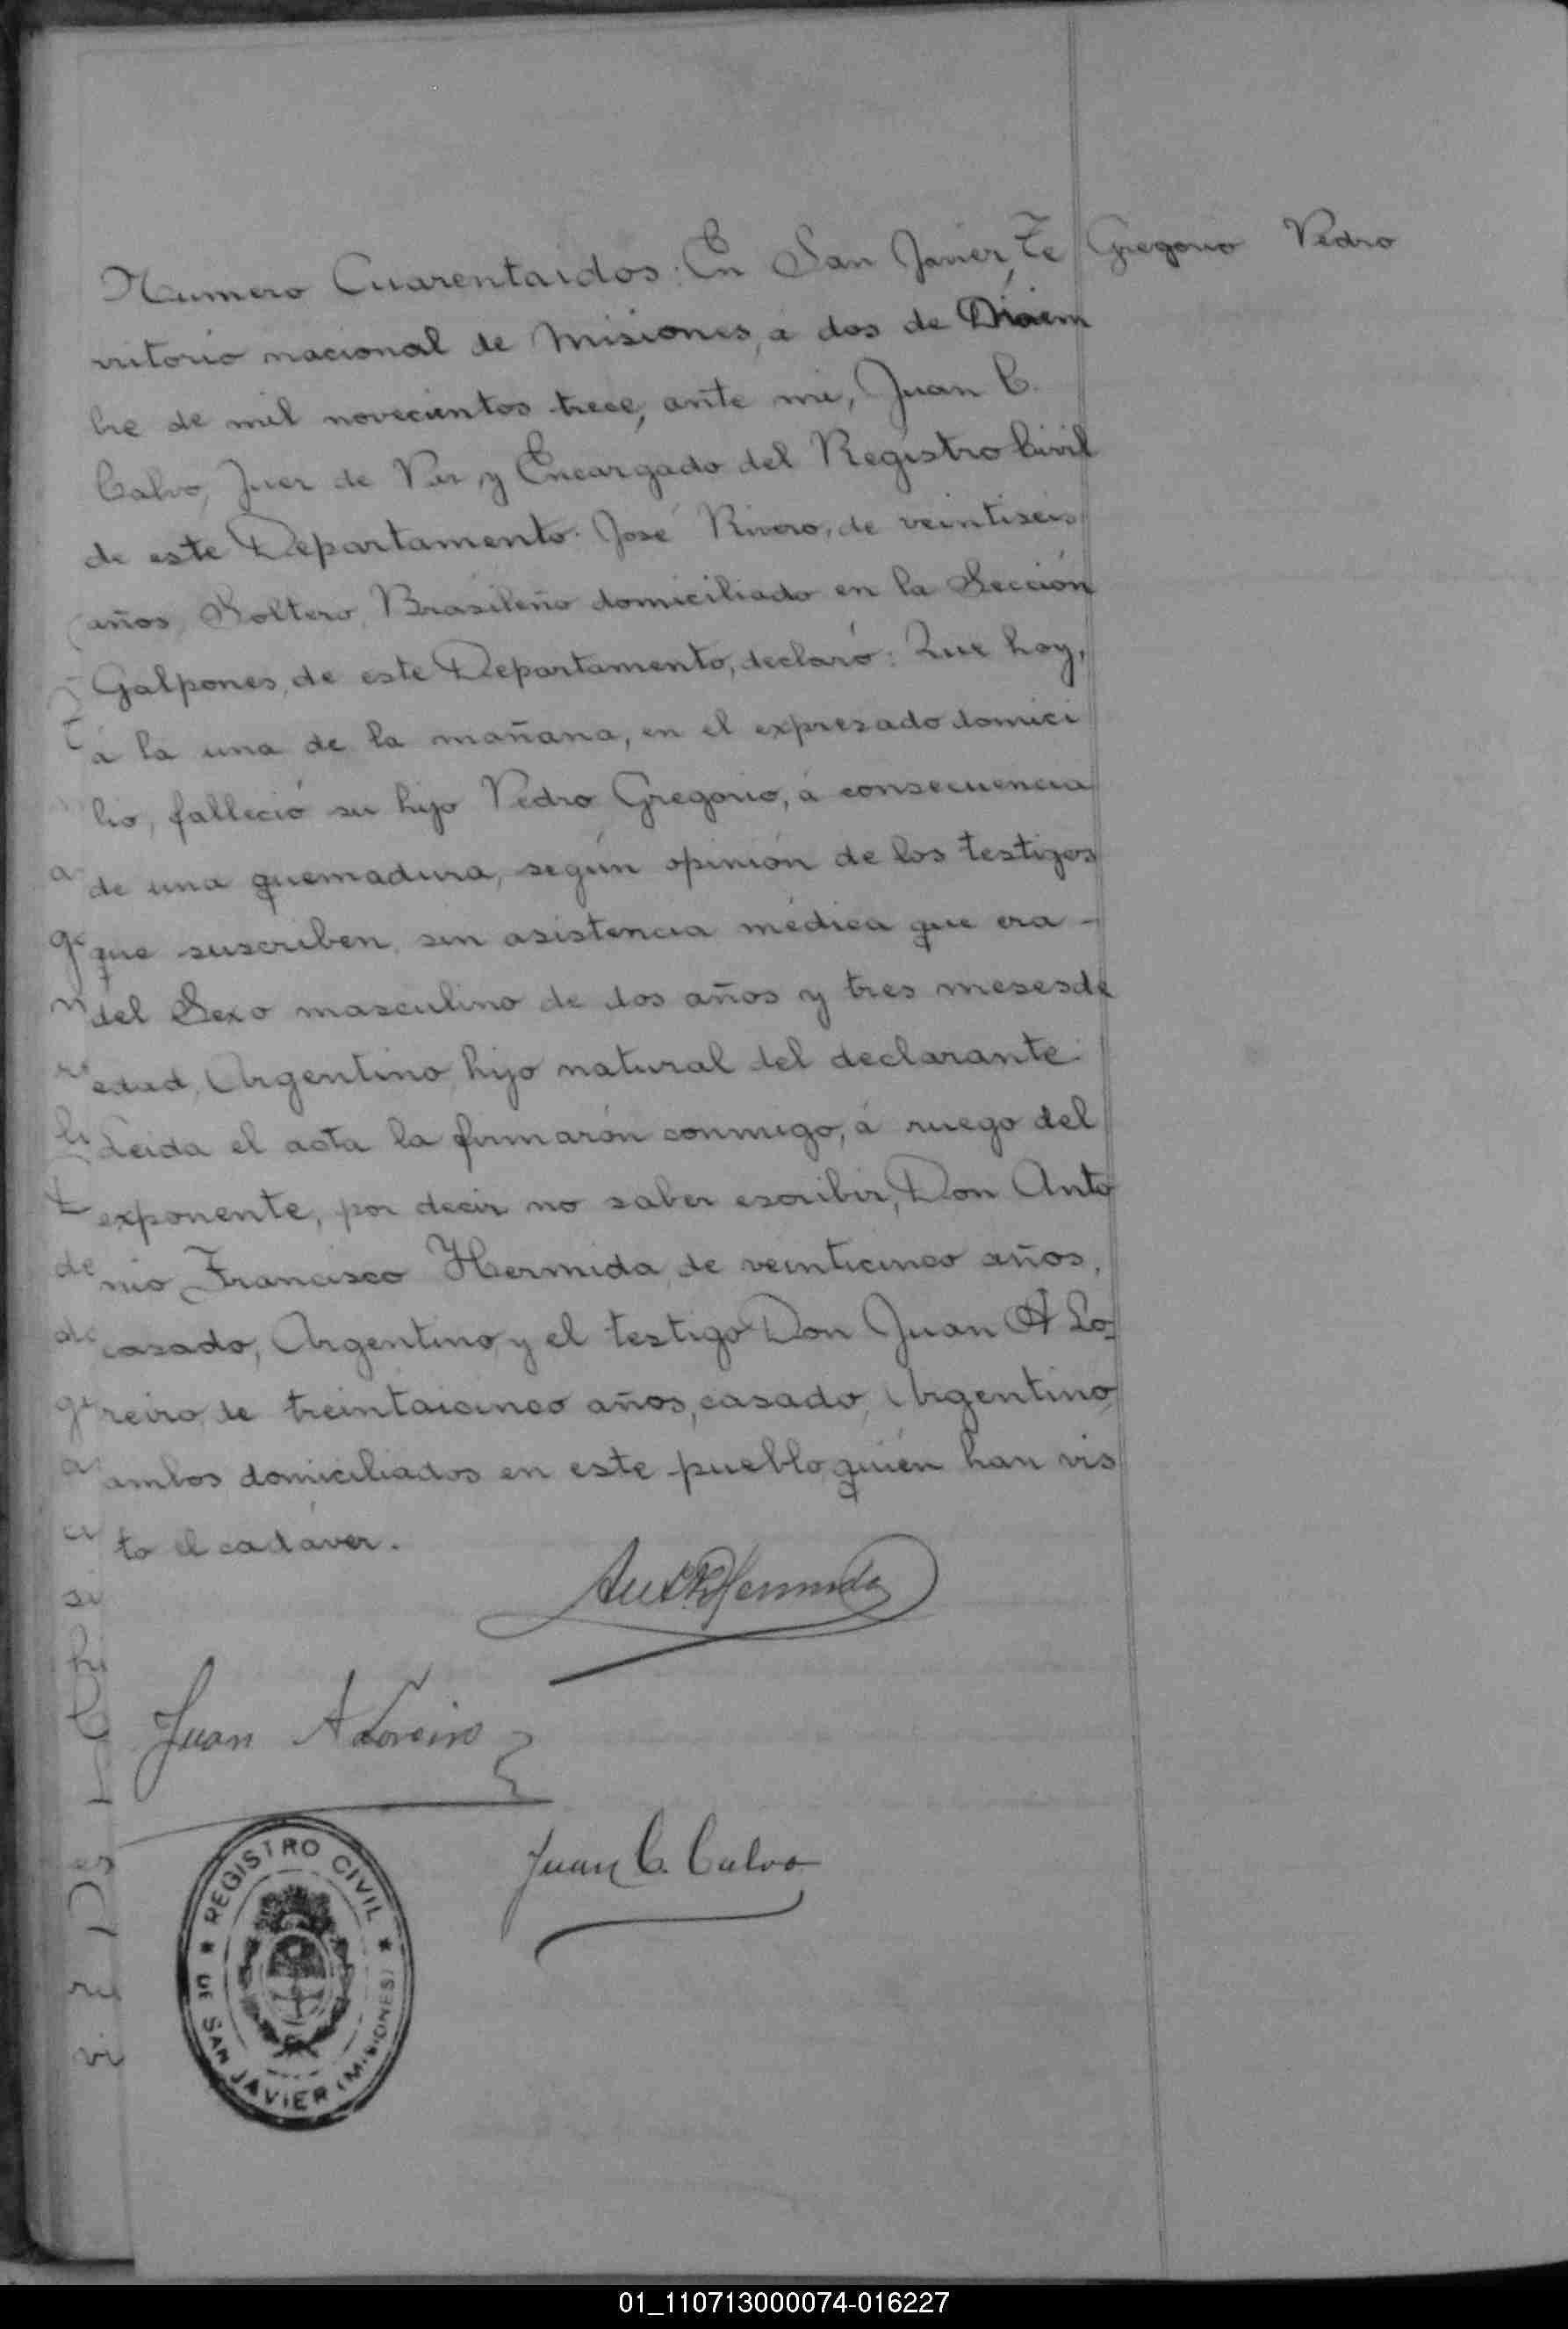 Numero Cuarentaidos: En San Javier, Te
Gregorio Pedro
rritorio nacional de Misiones, á dos de Diciem
bre de mil novecientos trece, ante mi, Juan C.
Calvo, Juez de Paz y Encargado del Registro Civil
de este Departamento. José Rivero, de veintiseis
años, Soltero, Brasileño domiciliado en la Sección
Galpones, de este Departamento, declaró: Que hoy,
á la una de la mañana, en el expresado domici
lio, falleció su hijo Pedro Gregorio, á consecuencia
de una quemadura, según opinión de los testigos
que suscriben, sin asistencia médica que era -
del Sexo masculino de dos años y tres meses de
edad, Argentino, hijo natural del declarante.
Leida el acta la firmarón conmigo, á ruego del
exponente, por decir no saber escribir, Don Anto
nio Francisco Hermida, de veinticinco años,
casado, Argentino, y el testigo Don Juan A Lo-
reiro, de treintaicinco años, casado, Argentino,
ambos domiciliados en este pueblo, quién han vis
to el cadáver.
Hermida
Juan A Loreiro
Juan C. Calvo
REGISTRO CIVIL
DE SAN JAVIER (MISIONES)
01_110713000074-016227